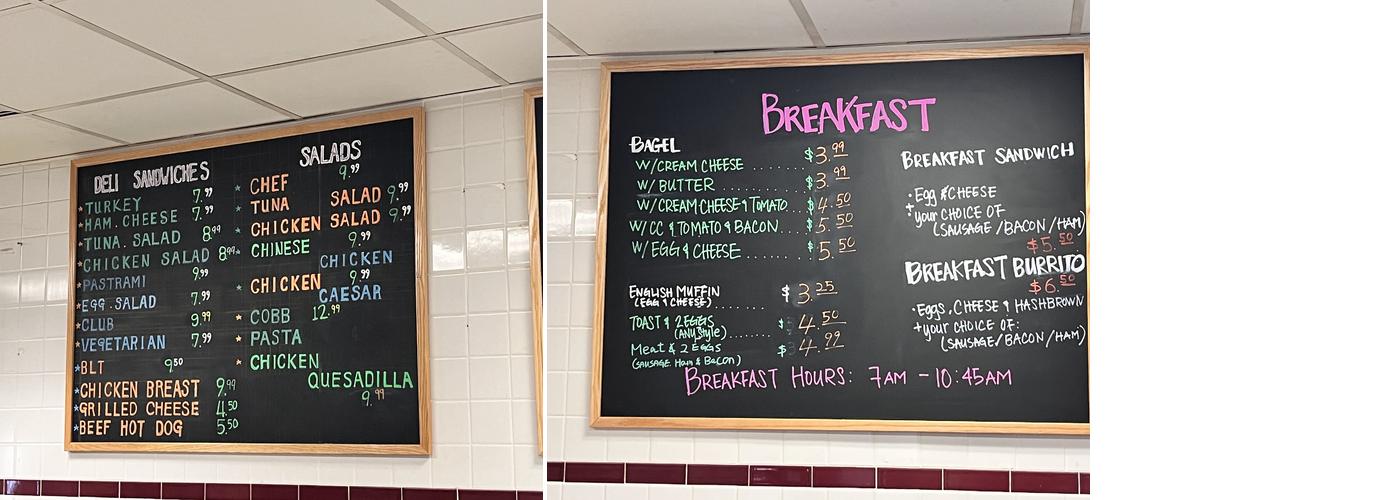 DELI SANDWICHES
* TURKEY 7.99
* HAM. CHEESE 7.99
* TUNA. SALAD 8.99
* CHICKEN SALAD 8.99
* PASTRAMI 9.99
* EGG. SALAD 7.99
* CLUB 9.99
* VEGETARIAN 7.99
* BLT 9.50
* CHICKEN BREAST 9.99
* GRILLED CHEESE 4.50
* BEEF HOT DOG 5.50
SALADS
* CHEF 9.99
* TUNA SALAD 9.99
* CHICKEN SALAD 9.99
* CHINESE 9.99
CHICKEN
* CHICKEN 9.99
CAESAR
* COBB 12.99
* PASTA
* CHICKEN
QUESADILLA
9.99
BREAKFAST
BAGEL
W/CREAM CHEESE ...... $3.99
W/ BUTTER ........ $3.99
W/CREAM CHEESE & TOMATO.. $4.50
W/CC & TOMATO & BACON.... $5.50
W/ EGG & CHEESE ...... $5.50
ENGLISH MUFFIN $3.25
(EGG & CHEESE) ........
TOAST & 2 EGGS $4.50
(ANY Style)
Meat & 2 EGGS $4.99
(SAUSAGE. Ham & Bacon)
BREAKFAST SANDWICH
• Egg & CHEESE
+ your CHOICE OF
(SAUSAGE/BACON/HAM)
$5.50
BREAKFAST BURRITO
$6.50
• Eggs, CHEESE & HASHBROWN
+ your CHOICE OF:
(SAUSAGE/BACON/HAM)
BREAKFAST HOURS: 7AM - 10:45AM